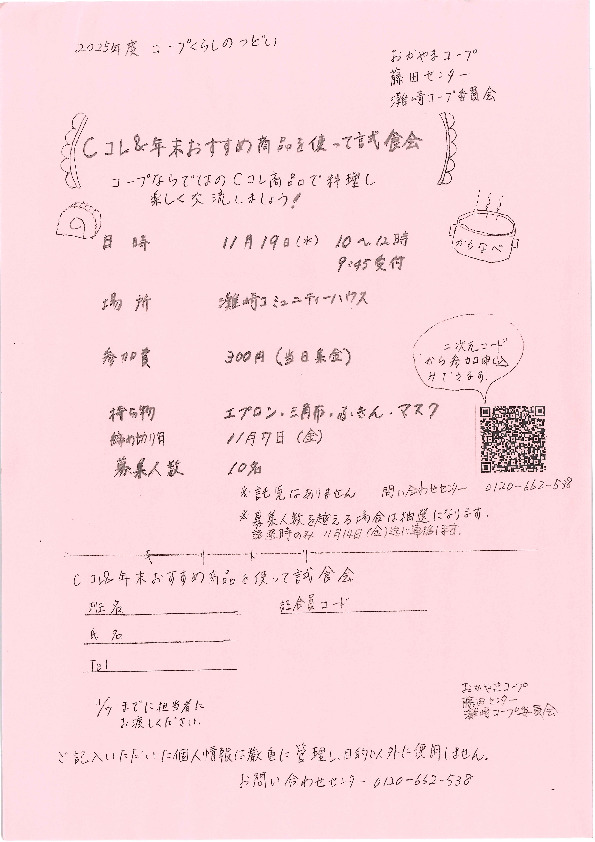 2025年度 コープくらしのつどい
おかやまコープ
藤田センター
灘崎コープ委員会
Cコレ&年末おすすめ商品を使って試食会
コープならではのCコレ商品で料理し
楽しく交流しましょう!
日時 11月19日(水) 10〜12時
9:45受付
からなべ
場所 灘崎コミュニティーハウス
参加費 300円(当日集金)
二次元コード
から参加申込
みできます。
持ち物 エプロン・三角巾・ふきん・マスク
締め切り日 11月7日(金)
募集人数 10名
※託児はありません 問い合わせセンター 0120-662-538
※募集人数を超える場合は抽選になります。
落選時のみ 11月14日(金)迄に連絡します。
Cコレ&年末おすすめ商品を使って試食会
班名 組合員コード
氏名
Tel
11/7までに担当者に
お渡しください。
おかやまコープ
藤田センター
灘崎コープ委員会
ご記入いただいた個人情報は厳重に管理し、目的以外に使用しません。
お問い合わせセンター 0120-662-538